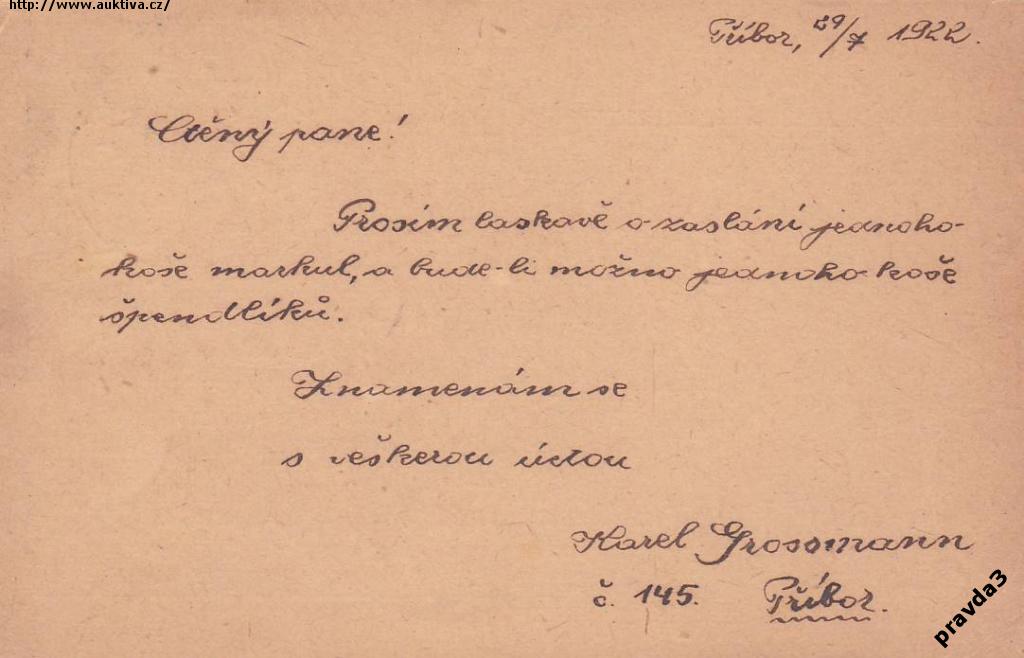 http://www.auktiva.cz/
Příbor, 29/7 1922.
Ctěný pane!
Prosím laskavě o zaslání jednoho
koše markul, a bude-li možno jednoho koše
špendlíků.
Znamenám se
s veškerou úctou
Karel Grossmann
č. 145. Příbor.
pravda3